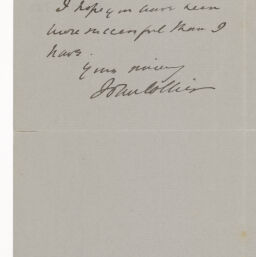 I hope you have been
more successful than I
have.
Yours sincerely
John Collier